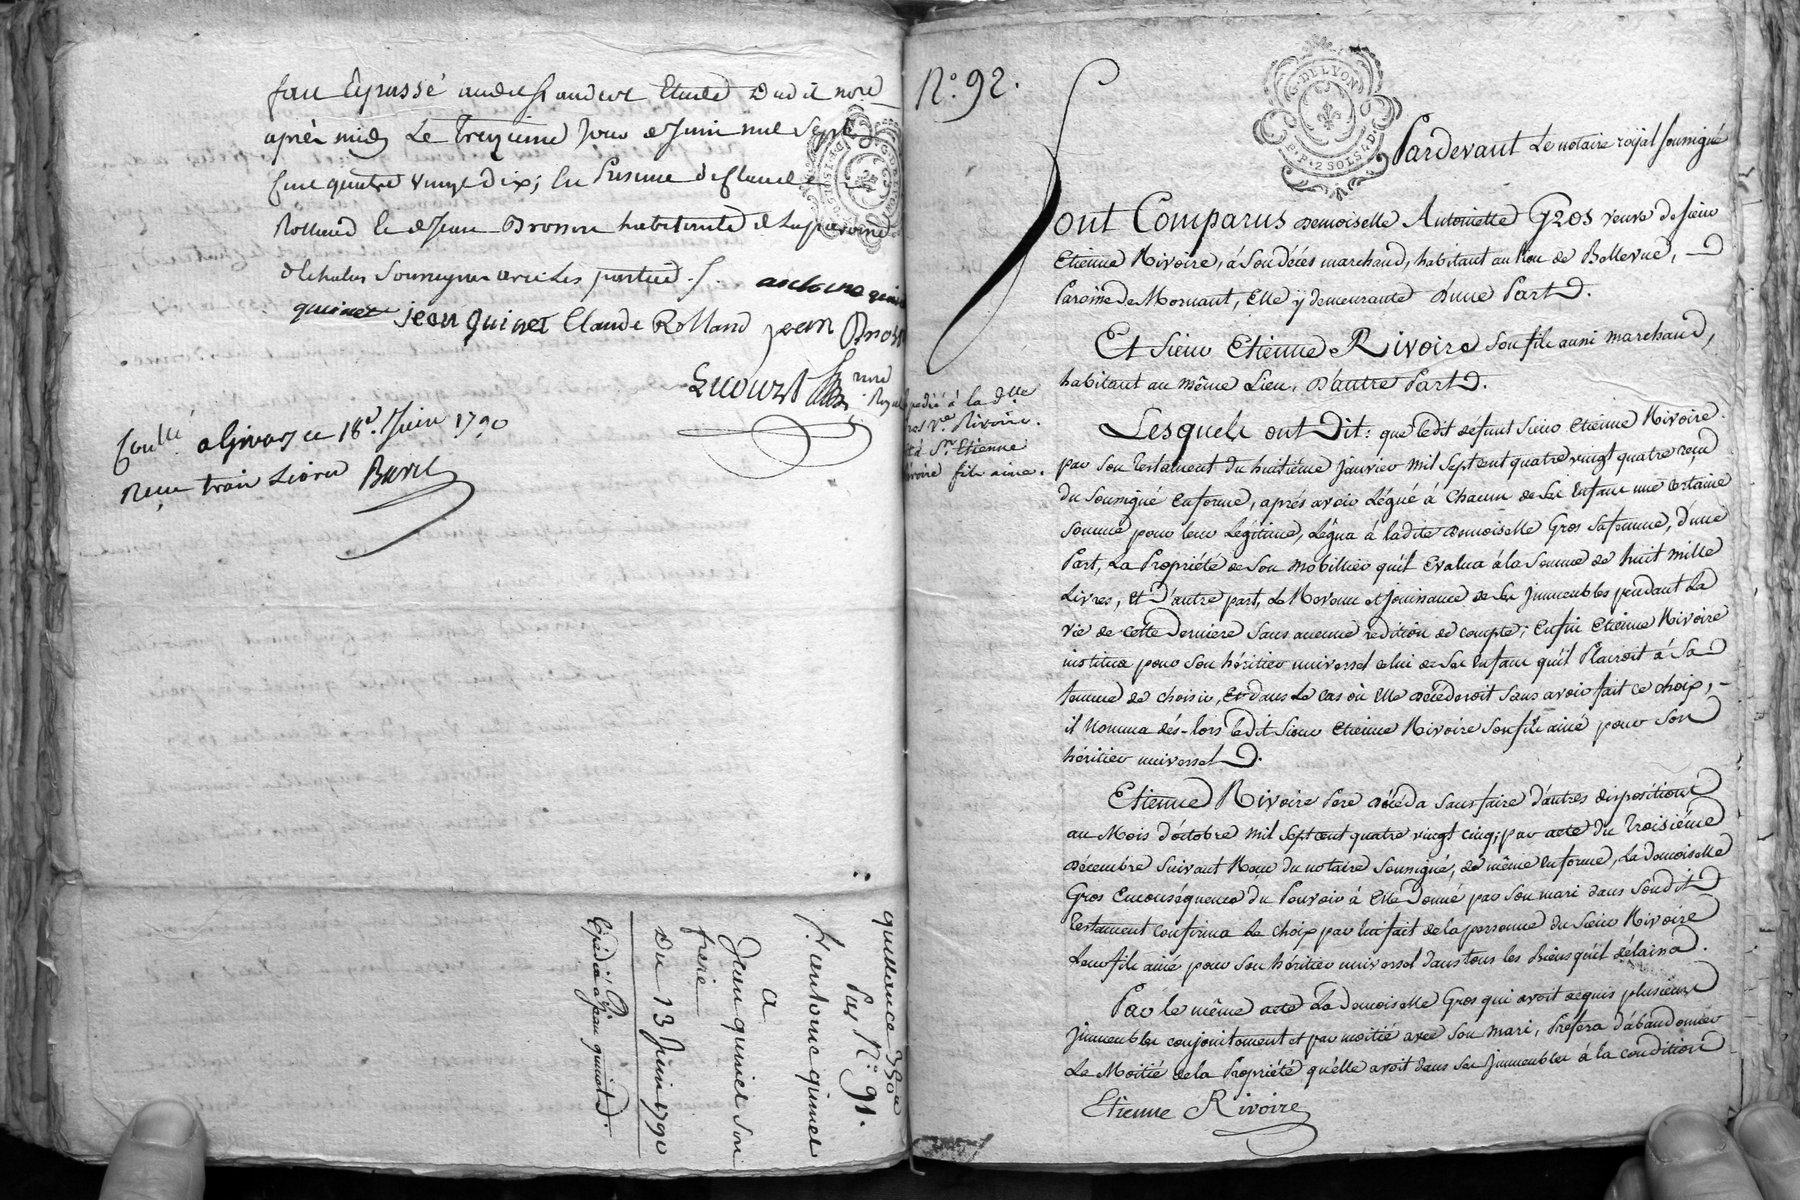 fait Et passé audit St andeol Etude dudit nore
après midy Le Treizieme Jour de Juin mil Sept
Cent quatre vingt dix; En Presence de Claude
Rolland Et de Jean Brosson habitants de La paroisse
d'Echalas Soussignes avec Les parties ./.
antoine quinet
quinet jean quinet Claude Rolland jean Bross
Lecourt nore Royal
Conllé a Givors ce 18e. Juin 1790
Reçu trois Livres Buret
quittance 350#
Par N° 91.
St. antoine quinet
a
Jean quinet Son
frere
Du 13 Juin 1790
Expédié à Jean quinet.
G. DE LYON
P.P. 2 SOLS 4 D.
N.° 92.
Pardevant Le notaire royal soussigné
Sont Comparus Demoiselle Antoinette Gros veuve de Sieur
Etienne Rivoire, à son décés marchand, habitant au Lieu de Bellevue,
Paroisse de Mornant, Elle y demeurante D'une Part.
Et Sieur Etienne Rivoire son fils aussi marchand,
habitant au même Lieu, D'autre Part.
Expédié à la dlle
Gros ve. Rivoire.
et à Sr. Etienne
Rivoire fils ainé.
Lesquels ont Dit: que ledit défunt Sieur Etienne Rivoire
par son Testament du huitiéme janvier mil sept cent quatre vingt quatre reçu
du soussigné en forme, après avoir Légué à Chacun de ses Enfans une certaine
somme pour leur Légitime, Légua à ladite demoiselle Gros sa femme, d'une
Part, La Propriété de son mobillier qu'il Evalua à la Somme de huit mille
Livres, et D'autre part, Le Revenu et jouissance de ses jmmeubles pendant La
vie de cette Derniere sans aucune reddition de compte; Enfin Etienne Rivoire
institua pour son héritier universel celui de ses Enfans qu'il Plairoit à Sa
femme de choisir, Et dans Le cas où Elle décéderoit sans avoir fait ce choix,
il nomma dés-lors ledit Sieur Etienne Rivoire son fils ainé pour son
héritier universel.
Etienne Rivoire Pere décéda sans faire d'autres dispositions
au Mois d'octobre mil sept cent quatre vingt cinq; par acte du Troisiéme
décembre suivant Reçu du notaire soussigné, de même en forme, La demoiselle
Gros En conséquence du Pouvoir à Elle donné par son mari dans son dit
Testament confirma Le choix par lui fait de la personne du Sieur Rivoire
Leur fils ainé pour son héritier universel dans tous les Biens qu'il délaissa.
Par le même acte La demoiselle Gros qui avoit acquis plusieurs
jmmeubles conjointement et par moitié avec son mari, Préfera d'abandonner
La Moitié de la Propriété qu'elle avoit dans ses jmmeubles à la condition
Etienne Rivoire